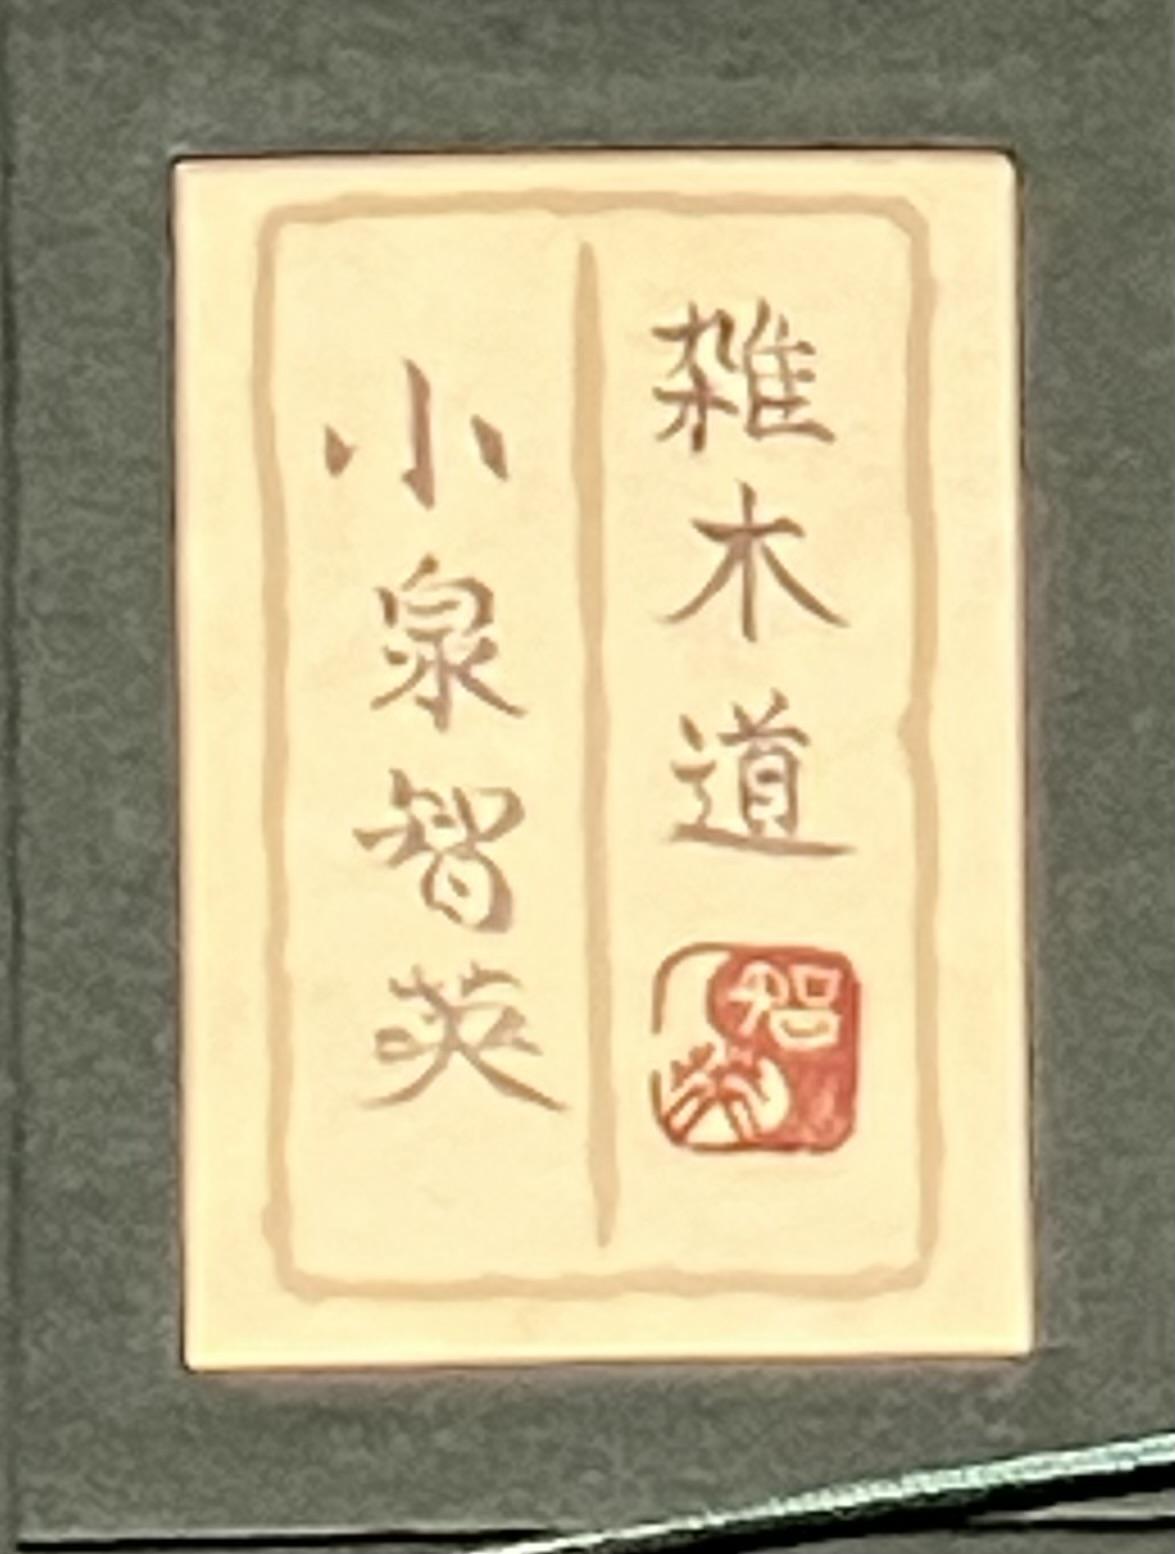 雑木道
智英
小泉智英